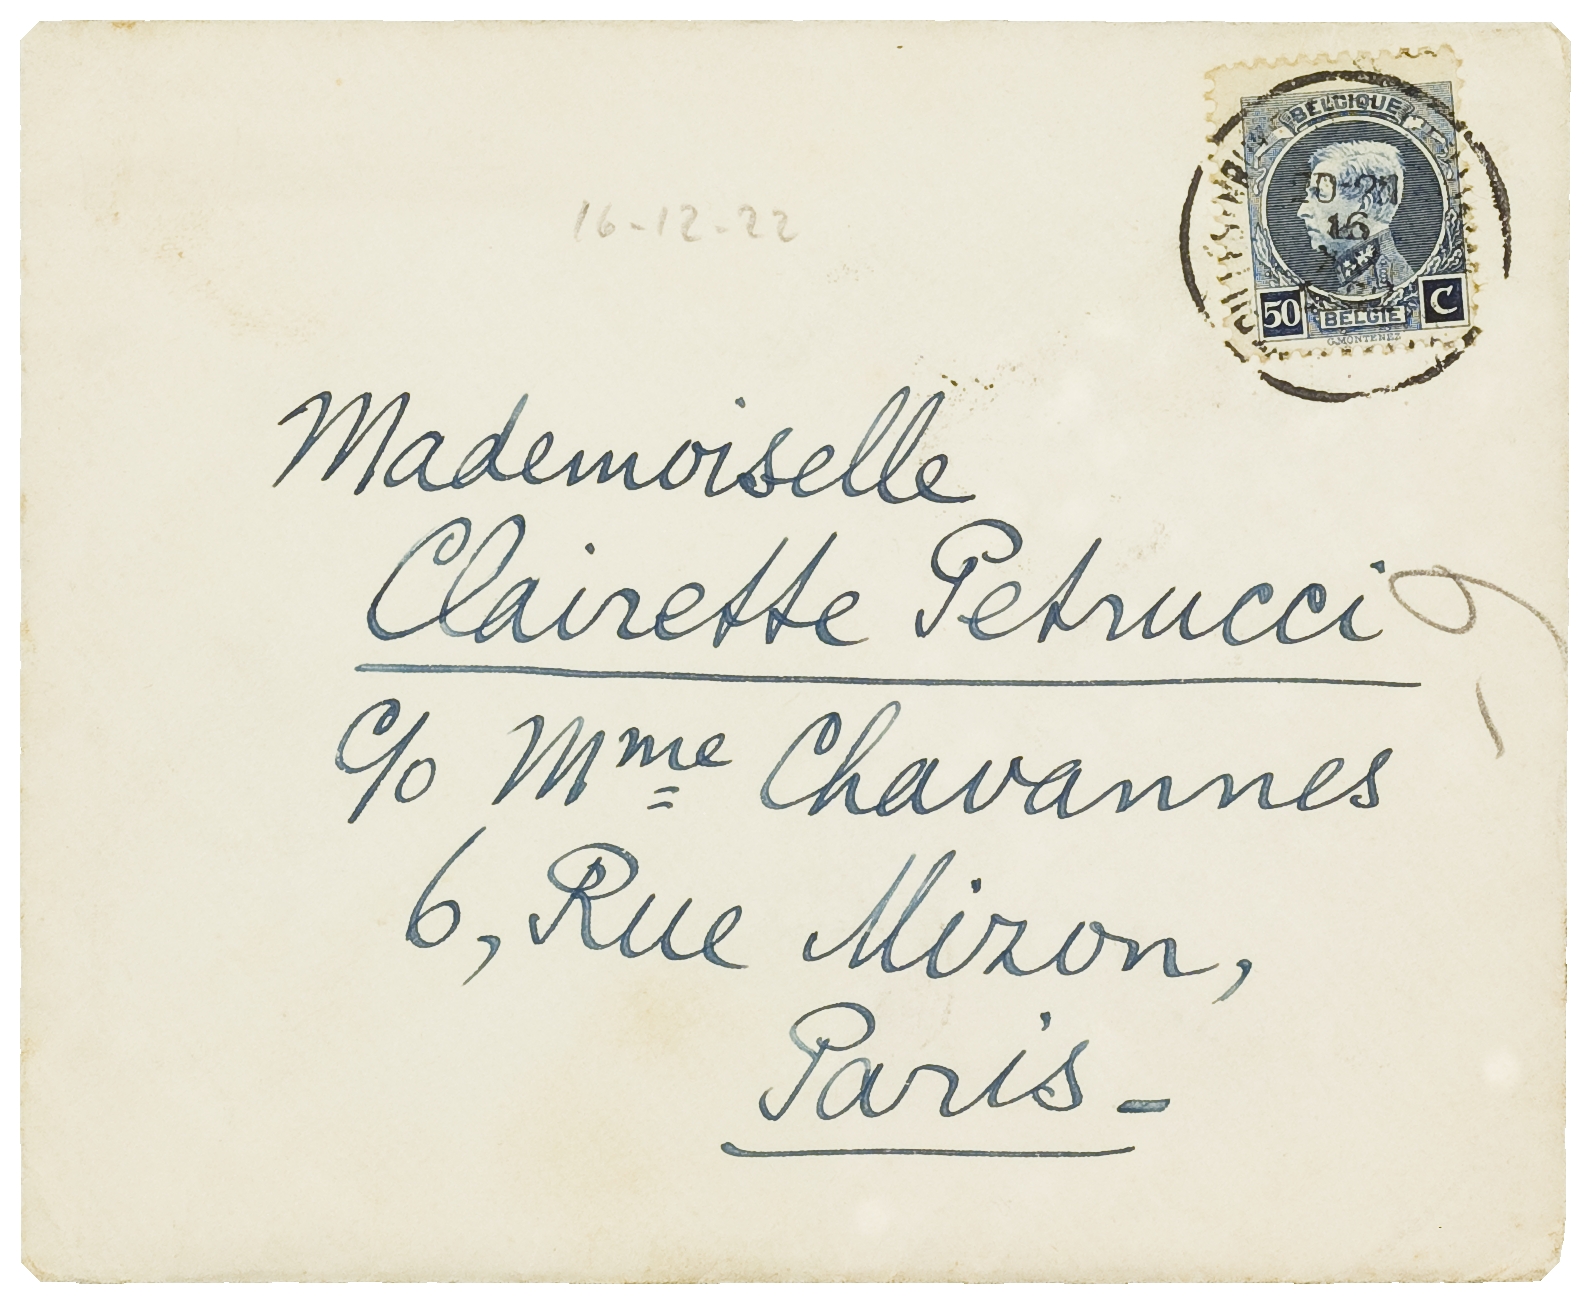 16-12-22
BELGIQUE
20-21
16
50
BELGIË
C
G.MONTENEZ
Mademoiselle
Clairette Petrucci
c/o Mme Chavannes
6, Rue Mizon,
Paris -